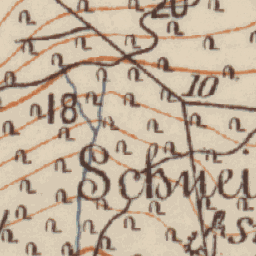 20
10
18
Schnei